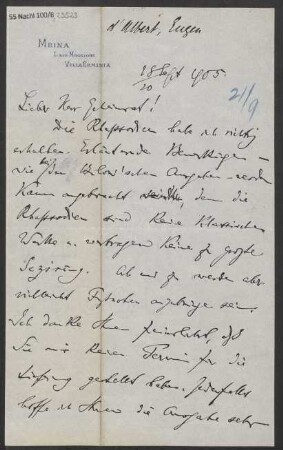 55 Nachl 100/B
d'Albert, Eugen
MEINA
LAGO MAGGIORE
VILLA EMINIA
18 Sept 905.
20
21/9
Lieber Herr Geheimrat!
Die Rhapsodien habe ich richtig
erhalten. Erläuternde Bemerkungen –
wie bei den Bülow'schen Ausgaben – werden
kaum angebracht sein, denn die
Rhapsodien sind keine klassischen
Werke u. vertragen keine zu große
Sezirung. Ab und zu werden aber
vielleicht Fußnoten angebracht sein.
Ich danke Ihnen, daß
Sie mir keinen Termin für die
Lieferung gestellt haben. Jedenfalls
hoffe ich Ihnen die Ausgabe sehr